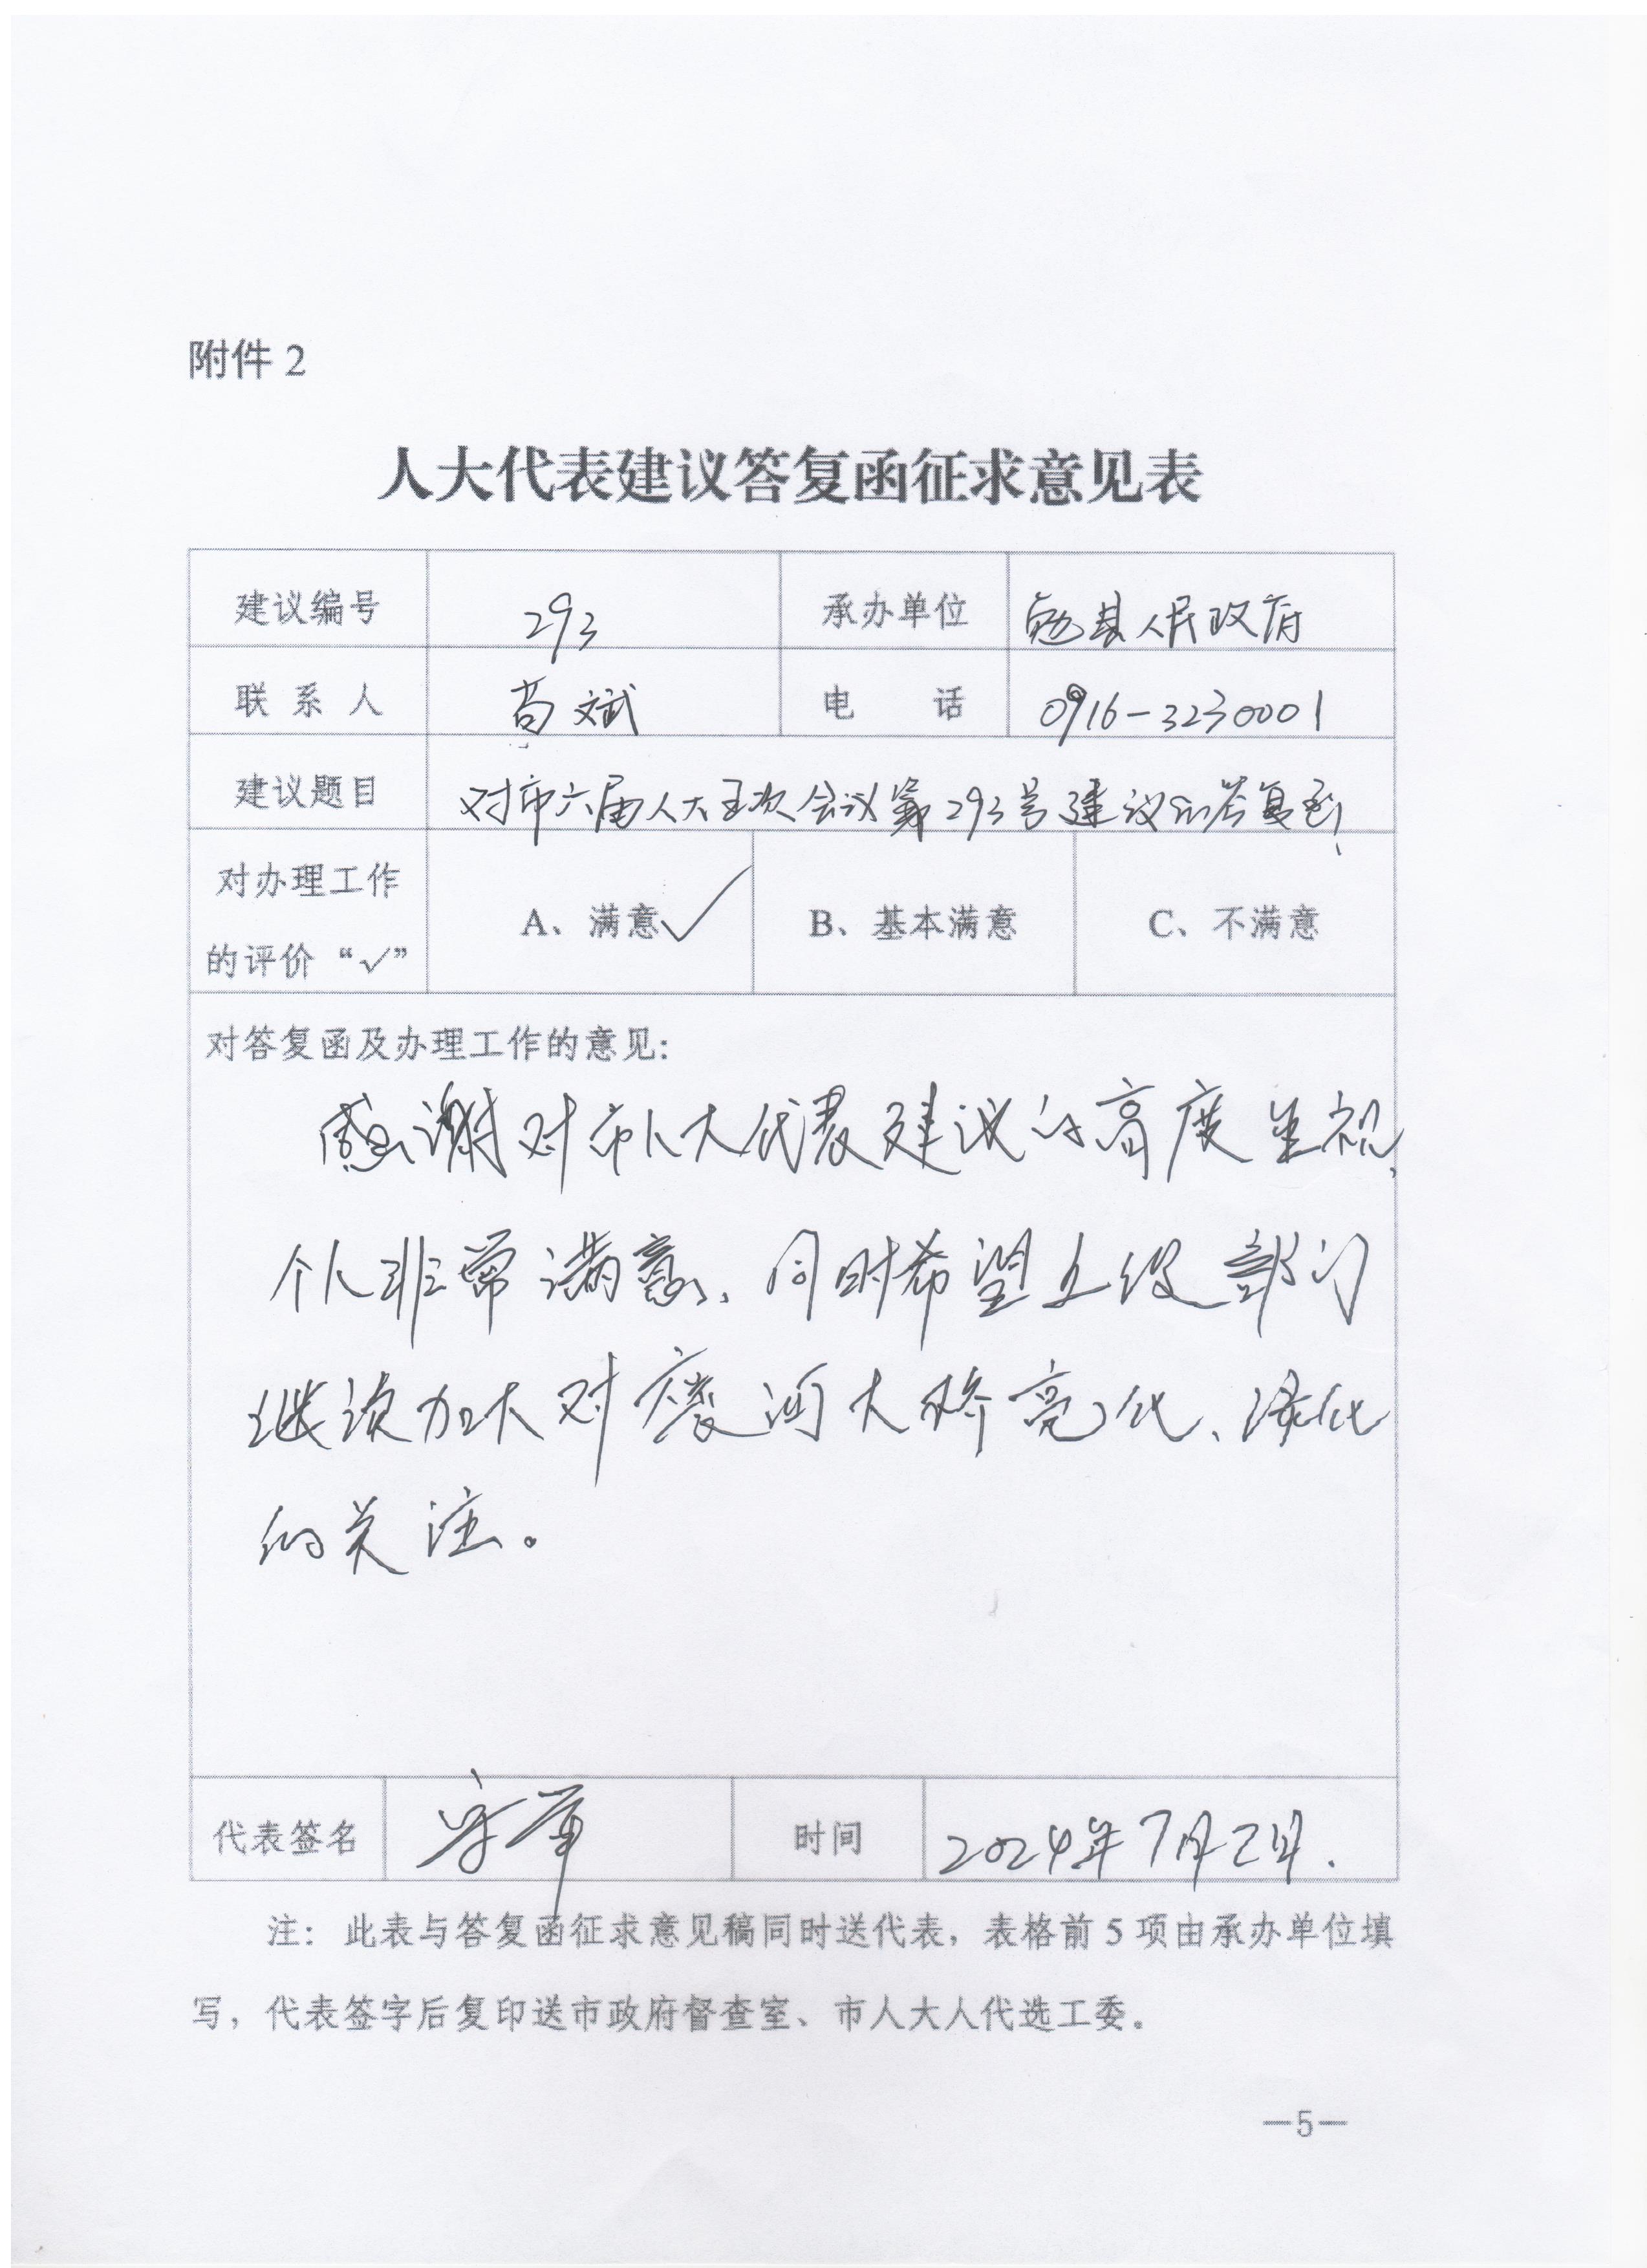 附件2
人大代表建议答复函征求意见表
建议编号 293 承办单位 勉县人民政府
联系人 苟文斌 电话 0916-3230001
建议题目 对市六届人大五次会议第293号建议的答复函
对办理工作的评价“√” A、满意√ B、基本满意 C、不满意
对答复函及办理工作的意见:
感谢对市人大代表建议的高度重视,
个人非常满意、同时希望上级部门
继续加大对 河大桥亮化、绿化
的关注。
代表签名 时间 2024年7月2日.
注：此表与答复函征求意见稿同时送代表，表格前5项由承办单位填
写，代表签字后复印送市政府督查室、市人大人代选工委。
—5—